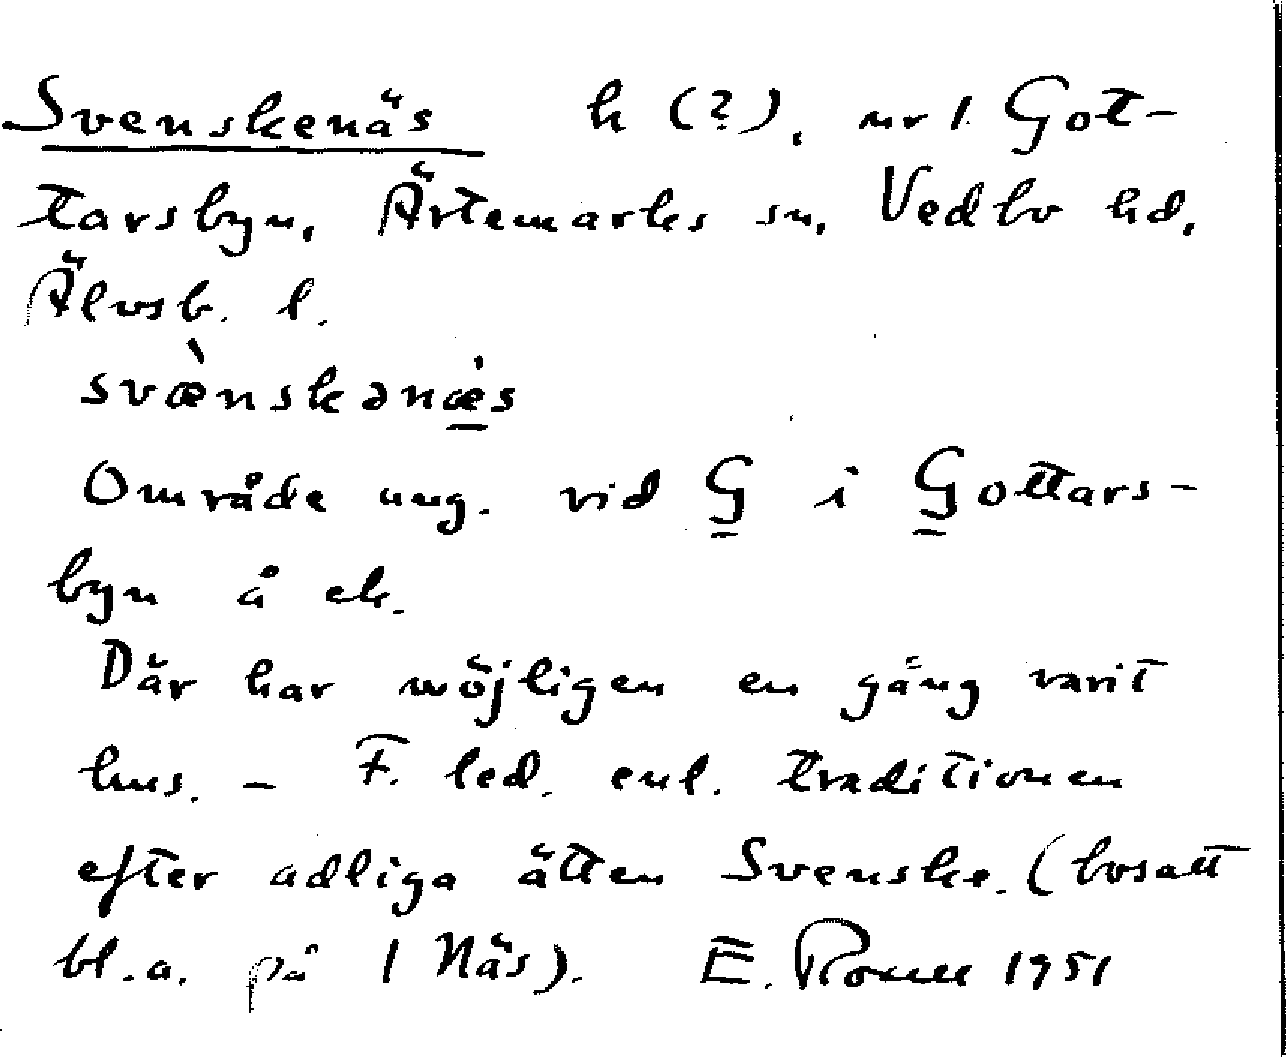 Svenskenäs h (?), nr 1. Got-
tarsbyn, Ärtemarks sn, Vedbo hd,
Älvsb. l.
svæ̀nskənæ̀s
Område ung. vid G i Gottars-
byn å ek.
Där har möjligen en gång varit
hus. – F. led. enl. traditionen
efter adliga ätten Svenske. (bosatt
bl.a. på 1 Näs). E. 1951